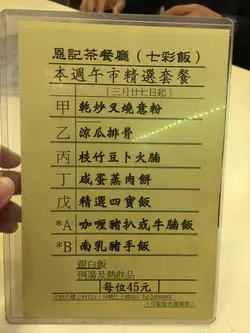 恩記茶餐廳（七彩飯）
本週午市精選套餐
[三月廿七日起]
甲 乾炒叉燒意粉
乙 涼瓜排骨
丙 枝竹豆卜火腩
丁 咸蛋蒸肉餅
戊 精選四寶飯
*A 咖喱豬扒或牛腩飯
*B 南乳豬手飯
跟白飯
例湯及熱飲品
每位45元